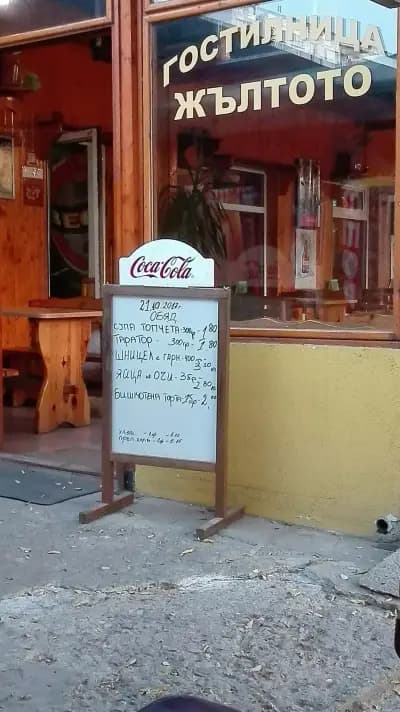 ГОСТИЛНИЦА
ЖЪЛТОТО
Coca-Cola
21.10.2017г.
ОБЯД
СУПА ТОПЧЕТА-300гр-1.80
ТАРАТОР - 300гр- 1.80
ШНИЦЕЛ с ГАРН-400гр-
ЯЙЦА на ОЧИ-3бр-
2.80
БИШКОТЕНА ТОРТА-1бр-2.00